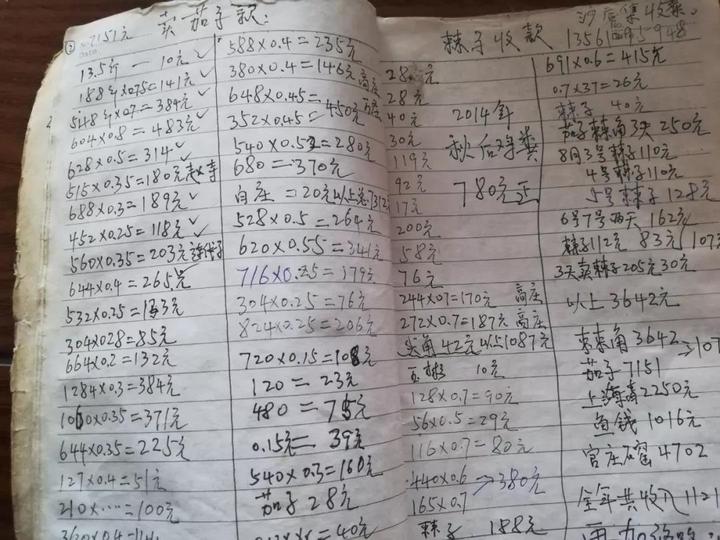 ② 7151元 卖茄子款:
13.5斤 — 10元 ✓
188斤×0.75=141元 ✓
548斤×0.7=384元 ✓
604×0.8=483元 ✓
628×0.5=314元 ✓
515×0.35=180元
688×0.3=189元 ✓
452×0.25=118元 ✓
560×0.35=203元
644×0.4=265元
532×0.25=133元
304×0.28=85元
664×0.2=132元
1284×0.3=384元
1060×0.35=371元
644×0.35=225元
127×0.4=51元
210×……=100元
588×0.4=235元
380×0.4=146元 高庄
648×0.45=
352×0.45=450元 高庄
540×0.52=280元
680=370元
白庄=20元以上总7312
528×0.5=264元
620×0.55=341元
716×0.25=179元
304×0.25=76元
824×0.25=206元
720×0.15=108元
120=23元
480=75元
0.15元=39元
540×0.3=160元
茄子 28元
=40元
辣子收款
28元
28元
40元
30元
119元
92元
17元
200元
58元
76元
2014年
秋后
780元正
244×0.7=170元 高庄
272×0.7=187元 高庄
尖角42元以上1087元
10元
128×0.7=90元
56×0.5=29元
116×0.7=80元
440×0.6 → 380元
165×0.7
辣子 188元
集收款
691×0.6=415元
0.7×37=26元
辣子 40元
茄子辣角3天 250元
8月3号辣子110元
4号辣子110元
5号辣子 128元
6号7号两天 162元
辣子112元 83元 107
3天卖辣子205元30元
以上3642元
辣角3642
茄子7151
2250元
鱼钱1016元
官庄 4702
全年共收入1121
再加